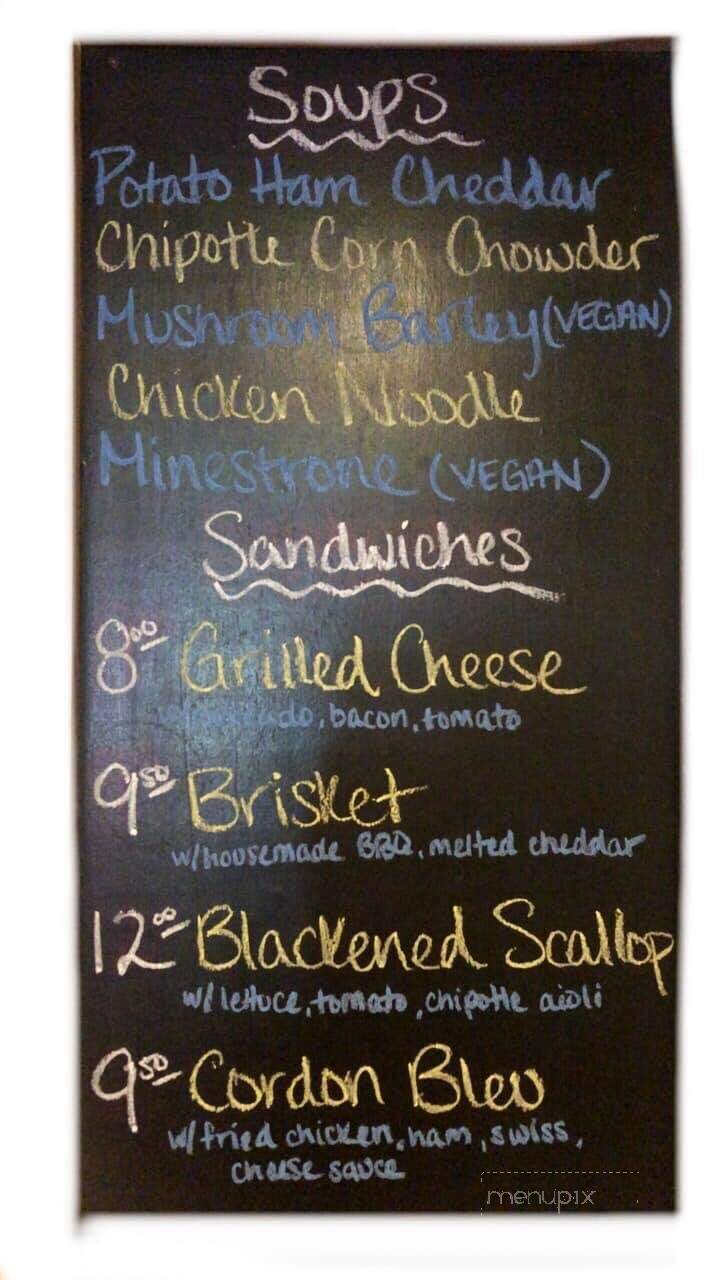 Soups
Potato Ham Cheddar
Chipotle Corn Chowder
Mushroom Barley (VEGAN)
Chicken Noodle
Minestrone (VEGAN)
Sandwiches
8.00 Grilled Cheese
w/ avocado, bacon, tomato
9.50 Brisket
w/housemade BBQ, melted cheddar
12.00 Blackened Scallop
w/ lettuce, tomato, chipotle aioli
9.50 Cordon Bleu
w/ fried chicken, ham, swiss,
cheese sauce
menupix